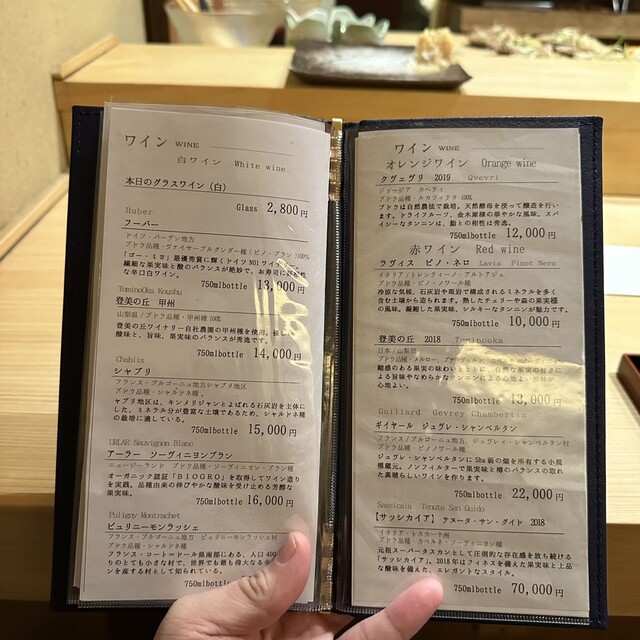 ワイン WINE
白ワイン White wine
本日のグラスワイン(白)
Glass 2,800円
Huber
フーバー
ドイツ・バーデン地方
ブドウ品種・ヴァイサーブルグンダー種(ピノ・ブラン)100%
「ゴー・ミヨ」最優秀賞に輝くドイツNO1ワイン
繊細な果実味と酸のバランスが絶妙で、お寿司に
な辛口白ワイン。
750mlbottle 13,000円
TominoOka Koushu
登美の丘 甲州
山梨県/ブドウ品種・甲州種 100%
登美の丘ワイナリー自社農園の甲州種を使用。
酸味と、旨味、果実味のバランスが秀逸です。
750mlbottle 14,000円
Chablis
シャブリ
フランス・ブルゴーニュ地方シャブリ地区
ブドウ品種・シャルドネ種
シャブリ地区は、キンメリジャンとよばれる石灰岩を主体に
した、ミネラル分が豊富な土壌であるため、シャルドネ種
の栽培に適している。
750mlbottle 15,000円
URLAR Sauvignon Blanc
アーラー ソーヴィニヨンブラン
ニュージーランド ブドウ品種・ソーヴィニヨン・ブラン種
オーガニック認証「BIOGRO」を取得してワイン造り
を実践。品種由来の伸びやかな酸味を受け止める芳醇な
果実味。
750mlbottle 16,000円
Puligny Montrachet
ピュリニーモンラッシェ
フランス・ブルゴーニュ地方 ピュリニーモンラッシェ村
ブドウ品種・シャルドネ種
フランス・コートードール県南部にある、人口400
りのとても小さな村で、世界でも最も偉大な辛
ンを産する村として知られている。
750mlbottle
ワイン WINE
オレンジワイン Orange wine
クヴェヴリ 2019 Qvevri
ジョージア カヘティ
ブドウ品種・ルカツィテリ 100%
ブドウは自然農法で栽培。天然酵母を使って醸造を行い
ます。ドライフルーツ、金木犀様の華やかな風味。スパ
イシーなタンニンは、鮨との相性は秀逸。
750mlbottle 12,000円
赤ワイン Red wine
ラヴィス ピノ・ネロ Lavis Pinot Nero
イタリア/トレンティーノ・アルトアディジェ
ブドウ品種・ピノ・ノワール種
冷涼な気候、石灰岩や斑岩で構成されるミネラルを多く
含む土壌から造られます。熟したチェリーや森の果実様
の風味。凝縮した果実味、シルキーなタンニンが魅力です。
750mlbottle 10,000円
登美の丘 2018 Tominooka
日本/山梨県
ブドウ品種・メルロー、プティヴェルド、
細感のある果実の味わいとともに、自然な果実の甘さに
よる旨味やなめらかなタンニンによる心地よい余韻が
心地よい。
750mlbottle 13,000円
Guillard Gevrey Chambertin
ギイヤール ジュヴレ・シャンベルタン
フランス/ブルゴーニュ地方、ジュヴレ・シャンベルタン村
ブドウ品種・ピノノワール種
ジュヴレ・シャンベルタンに5ha弱の畑を所有する小規
模蔵元。ノンフィルターで果実味と樽のバランスの取れ
た素晴らしいワインを作ります。
750mlbottle 22,000円
Sassicaia Tenuta San Guido
【サッシカイア】 テヌータ・サン・グイド 2018
イタリア・トスカーナ州
ブドウ品種・カベルネ・ソーヴィニヨン種
元祖スーパータスカンとして圧倒的な存在感を放ち続ける
「サッシカイア」。2018年はフィネスを備えた果実味と上品
な酸味を備えた、エレガントなスタイル。
750mlbottle 70,000円